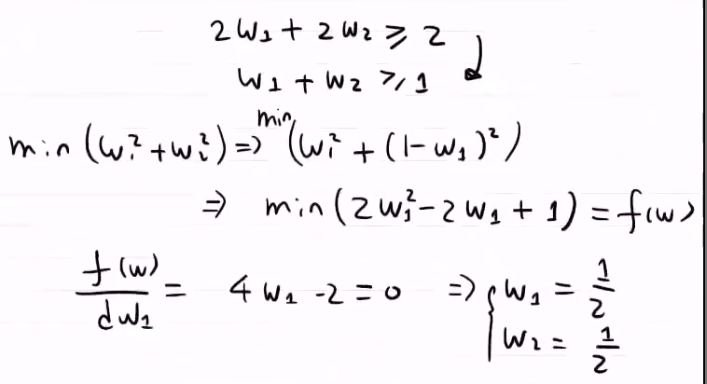 2w₁ + 2w₂ ⩾ 2
w₁ + w₂ ⩾ 1
min (w₁² + w₂²) ⇒ min (w₁² + (1 - w₁)²)
⇒ min (2w₁² - 2w₁ + 1) = f(w)
f(w) / dw₁ = 4w₁ - 2 = 0 ⇒ { w₁ = 1/2
w₂ = 1/2